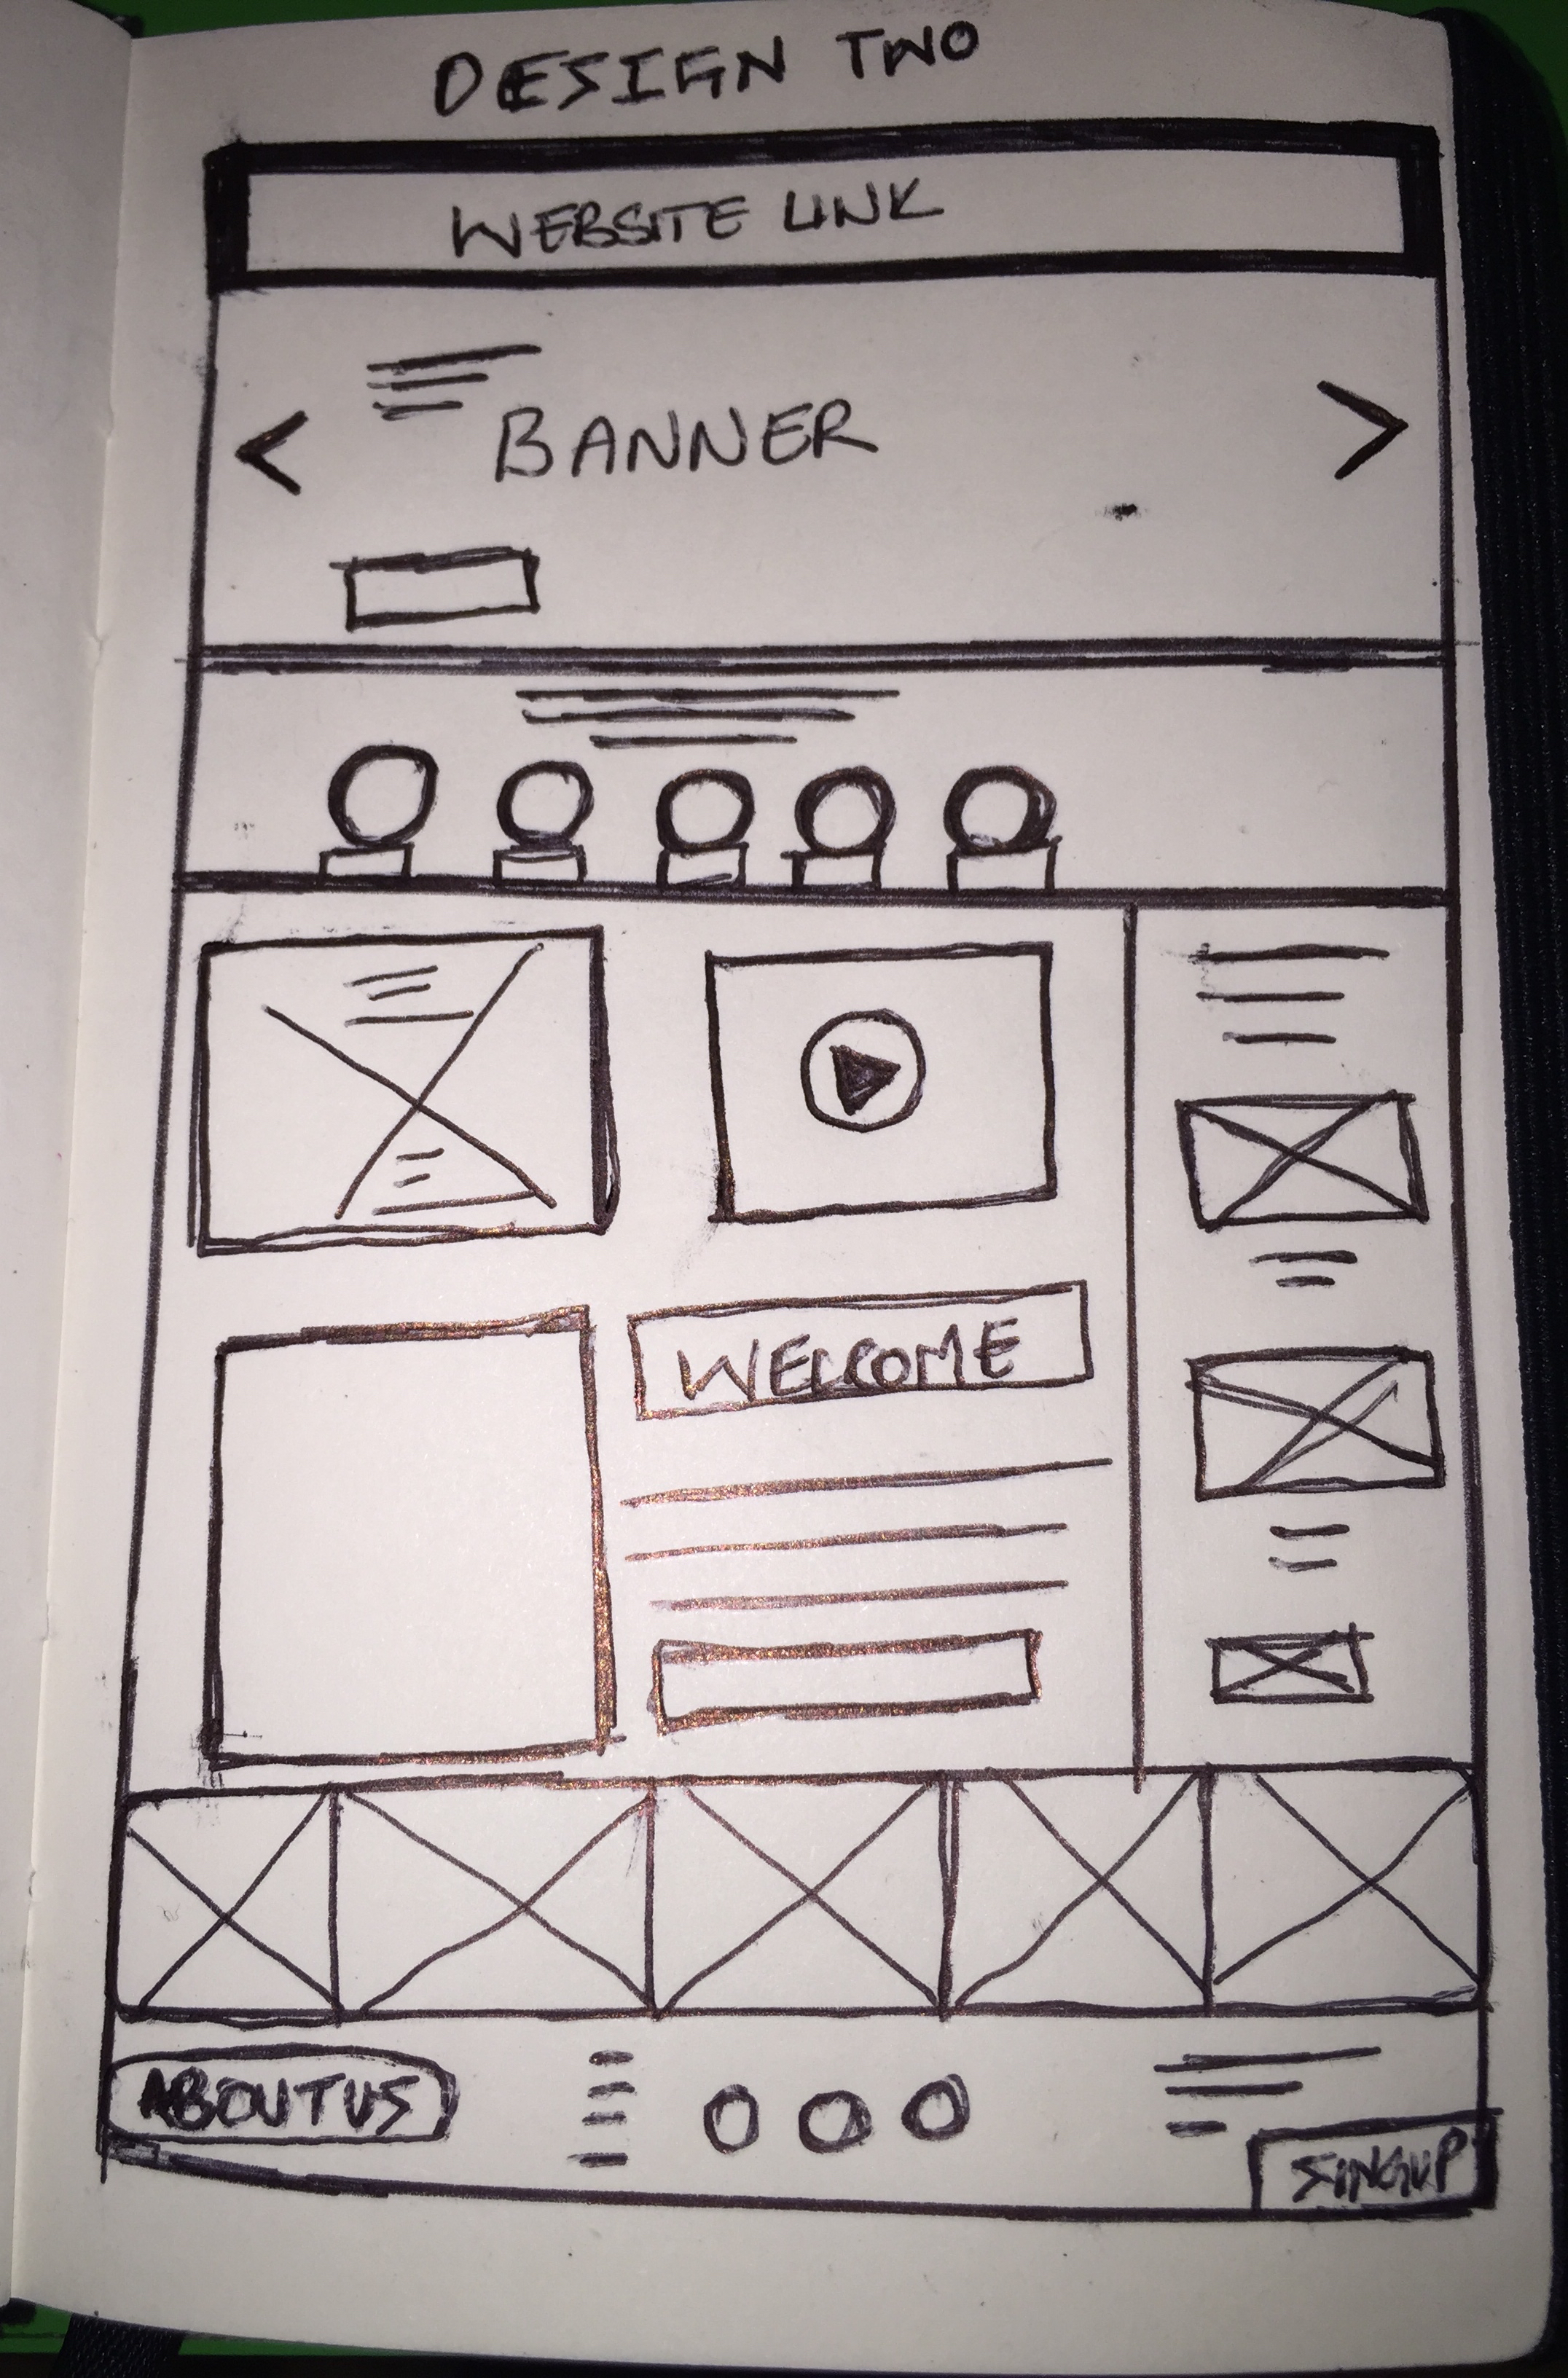 DESIGN TWO
WEBSITE LINK
BANNER
WELCOME
ABOUT US
SINGUP